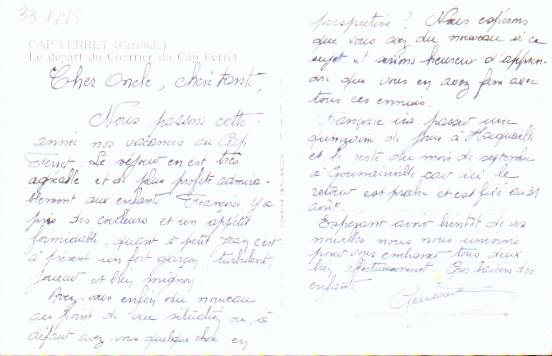 33
CAP FERRET (Gironde)
Le départ du Courrier du Cap Ferret
Cher Oncle, chère Tante,
Nous passons cette
année nos vacances au Cap
Ferret. Le séjour en est très
agréable et de plus profite admira-
blement aux enfants. Françoise y a
pris des couleurs et un appétit
formidable, quant à petit Jean c'est
à présent un fort garçon turbulent,
joueur et bien mignon.
Avez-vous enfin du nouveau
au point de vue situation ou, à
défaut avez-vous quelque chose en
perspective ? Nous espérons
que vous avez du nouveau à ce
sujet et serions heureux d'appren-
dre que vous en avez fini avec
tous ces ennuis.
Françoise ira passer une
quinzaine de jours à
et le reste du mois de septembre
à Goussainville car ici le
retour est proche et est fixé au 31
août.
Espérant avoir bientôt de vos
nouvelles nous nous unissons
pour vous embrasser tous deux
bien affectueusement. Gros baisers des
enfants